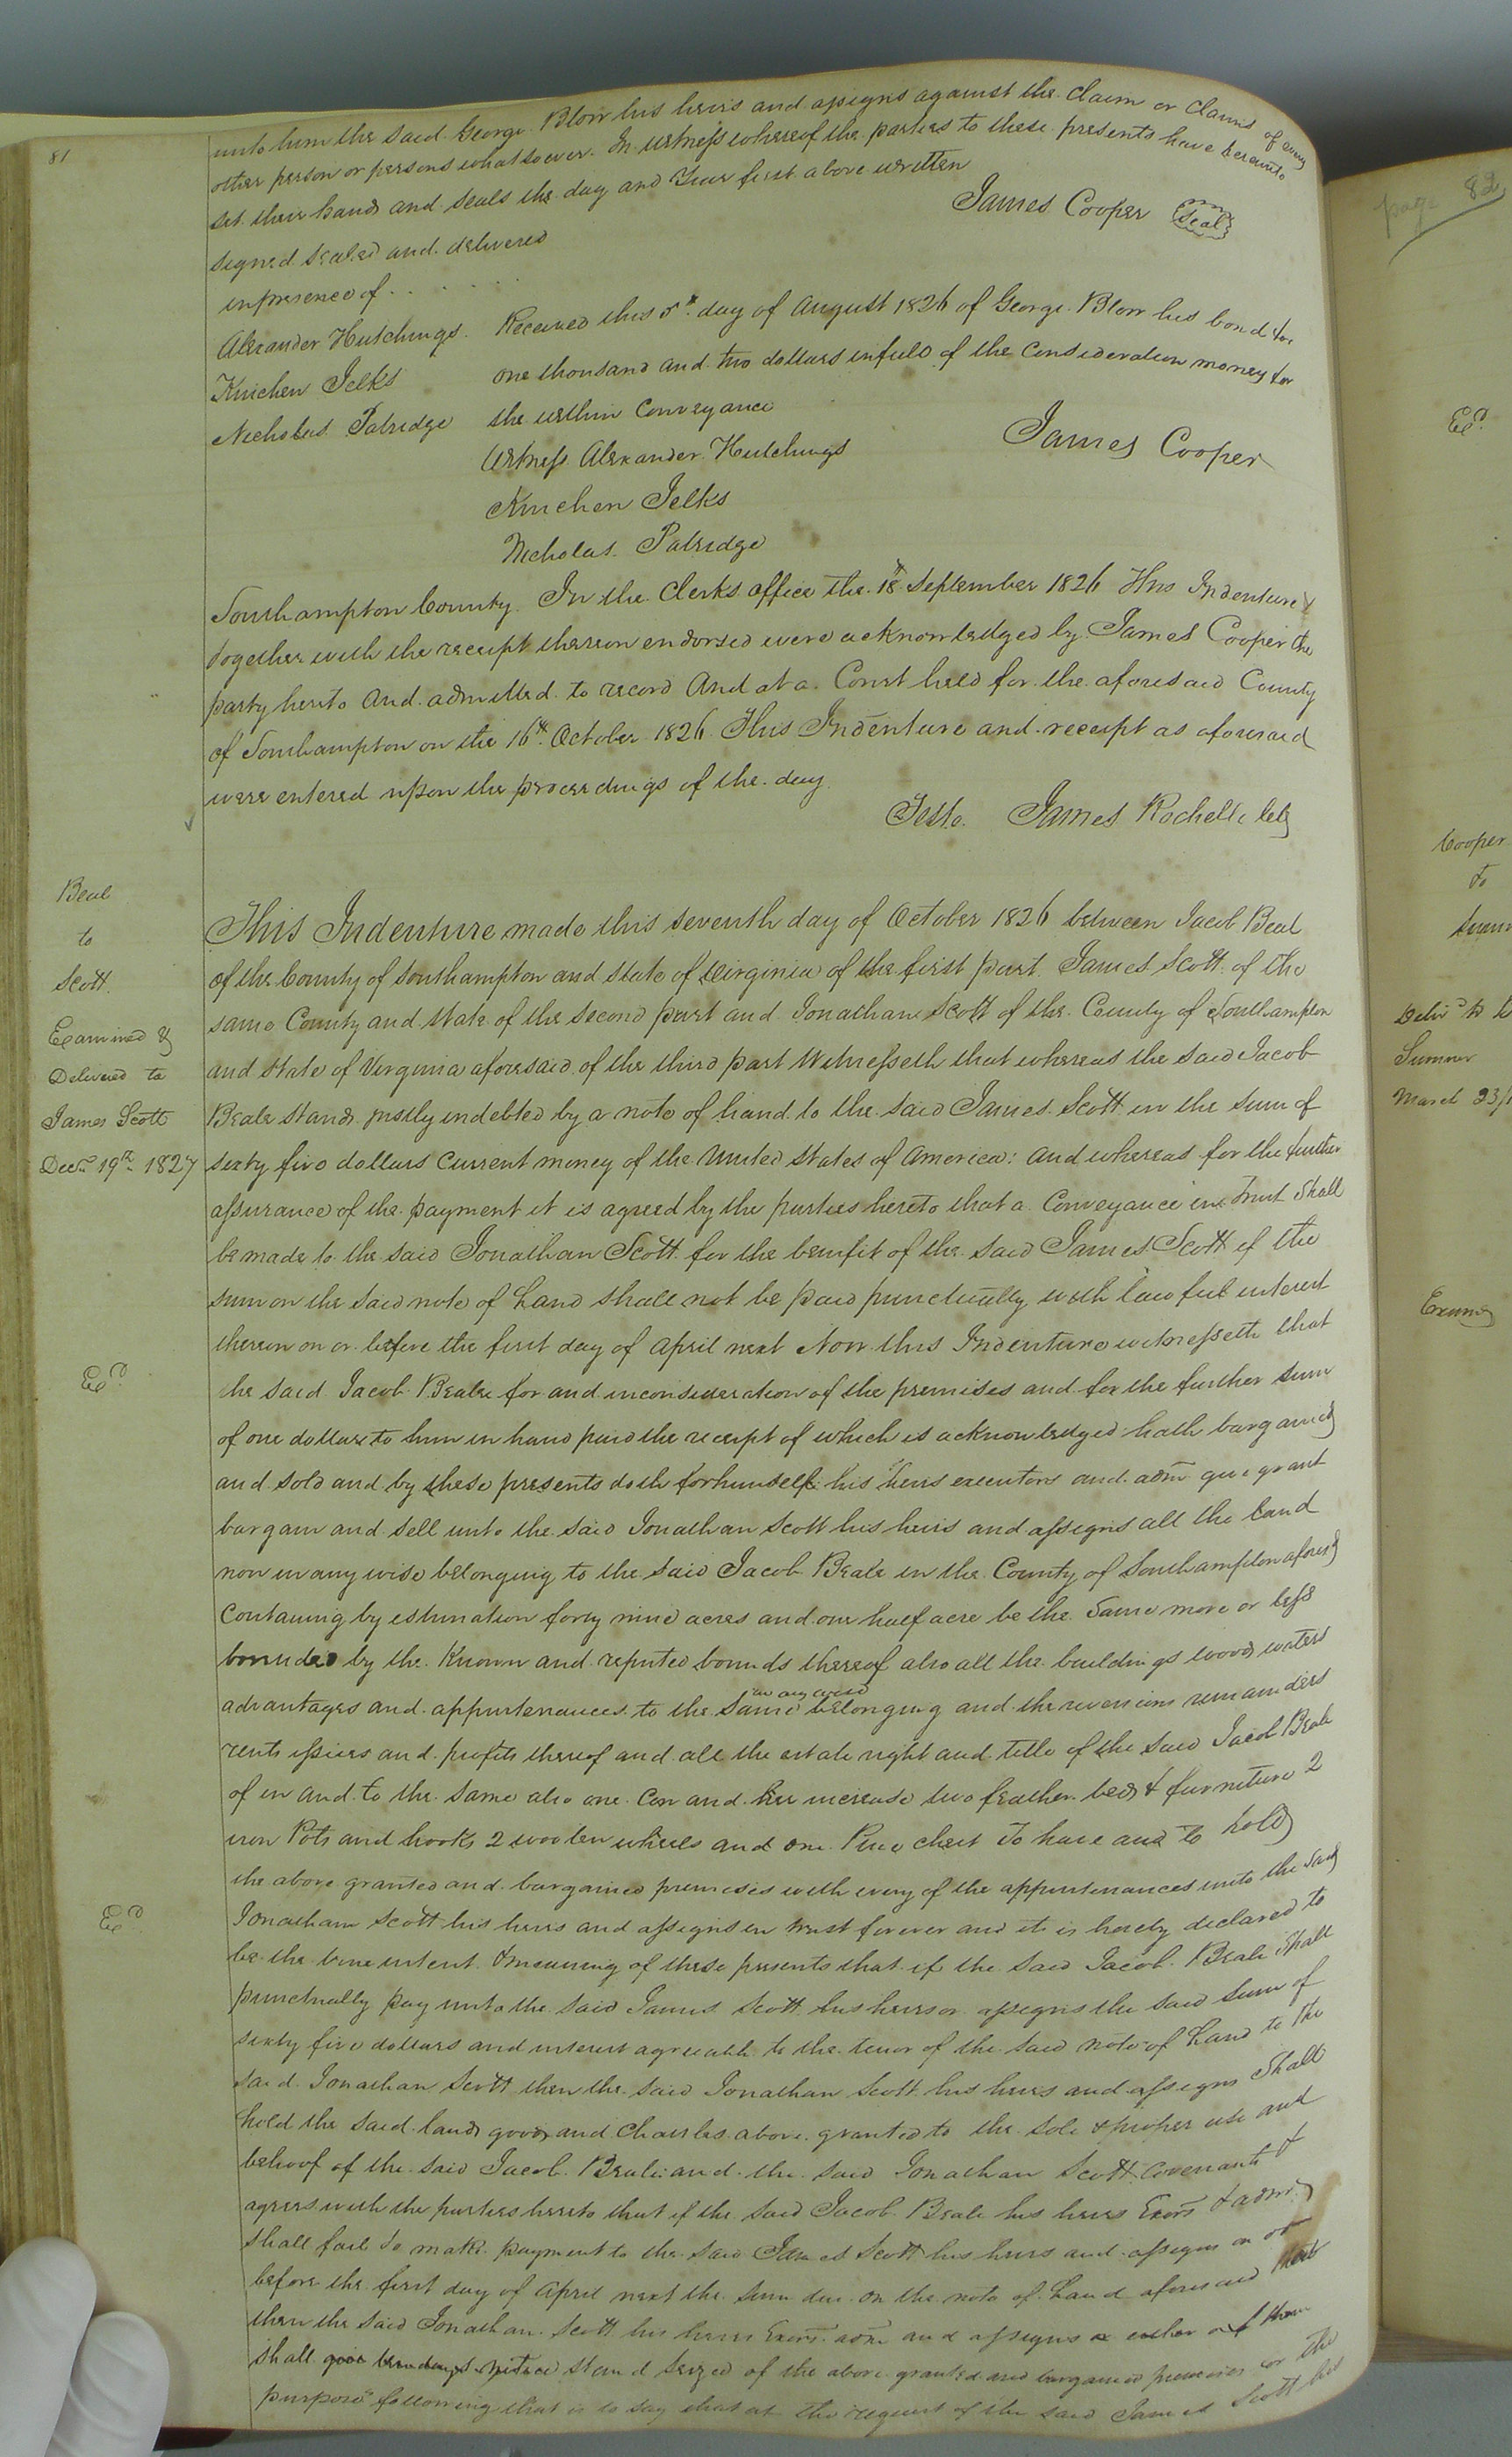 81
unto him the said George Blow his heirs and assigns against the claim or claims of every
other person or persons whatsoever. In witness whereof the parties to these presents have hereunto
set their hands and seals the day and Year first above written
James Cooper Seal
signed sealed and delivered
in presence of . . . . . .
Alexander Hutchings. Received this 5th day of August 1826 of George Blow his bond for
Kinchen Jelks one thousand and two dollars in full of the consideration money for
Nicholas Patridge the within Conveyance
Witness Alexander Hutchings James Cooper
Kinchen Jelks
Nicholas Patridge
Southampton County. In the Clerks office the 18th September 1826 This Indenture
together with the receipt thereon endorsed were acknowledged by James Cooper the
party hereto and admitted to record And at a Court held for the aforesaid County
of Southampton on the 16th October 1826 This Indenture and receipt as aforesaid
were entered upon the proceedings of the day.
Teste. James Rochelle
Beal
to
Scott.
Examined &
Delivered to
James Scott
Decr 19th 1827
This Indenture made this seventh day of October 1826 between Jacob Beal
of the County of Southampton and State of Virginia of the first part James Scott of the
same County and State of the second part and Jonathan Scott of the County of Southampton
and State of Virginia aforesaid of the third part Witnesseth that whereas the said Jacob
Beale stands justly indebted by a note of hand to the said James Scott in the sum of
sixty five dollars current money of the United States of America: and whereas for the further
assurance of the payment it is agreed by the parties hereto that a Conveyance in trust shall
be made to the said Jonathan Scott for the benefit of the said James Scott if the
sum on the said note of hand shall not be paid punctually with lawful interest
thereon on or before the first day of April next Now this Indenture witnesseth that
the said Jacob Beale for and in consideration of the premises and for the further sum
of one dollar to him in hand paid the receipt of which is acknowledged hath bargained
and sold and by these presents doth for himself his heirs executors and adm give grant
bargain and sell unto the said Jonathan Scott his heirs and assigns all the land
now in any wise belonging to the said Jacob Beale in the County of Southampton aforesd
Containing by estimation forty nine acres and one half acre be the same more or less
bounded by the Known and reputed bounds thereof also all the buildings woods waters
advantages and appurtenances to the same in any wise belonging and the reversions remainders
rents issues and profits thereof and all the estate right and title of the said Jacob Beale
of in and to the same also one Cow and her increase two feather beds & furniture 2
iron Pots and hooks 2 woolen wheels and one Pine chest To have and to hold
the above granted and bargained premises with every of the appurtenances unto the said
Jonathan Scott his heirs and assigns in trust forever and it is hereby declared to
be the true intent & meaning of these presents that if the said Jacob Beale shall
punctually pay unto the said James Scott his heirs or assigns the said sum of
sixty five dollars and interest agreeable to the tenor of the said note of hand to the
said Jonathan Scott then the said Jonathan Scott his heirs and assigns shall
hold the said land goods and Chattles above granted to the sole & proper use and
behoof of the said Jacob Beale and the said Jonathan Scott Covenants &
agrees with the parties hereto that if the said Jacob Beale his heirs Exors & admr
shall fail to make payment to the said James Scott his heirs and assigns on or
before the first day of April next the sum due on the note of hand aforesaid that
then the said Jonathan Scott his heirs Exors adm and assigns or either of them
shall stand seized of the above granted and bargained premises for the
purpose following that is to say that at the request of the said James Scott his
Exd
Exd
page 82
Exd
Cooper
to
Deliv'd to
Sumner
March 23